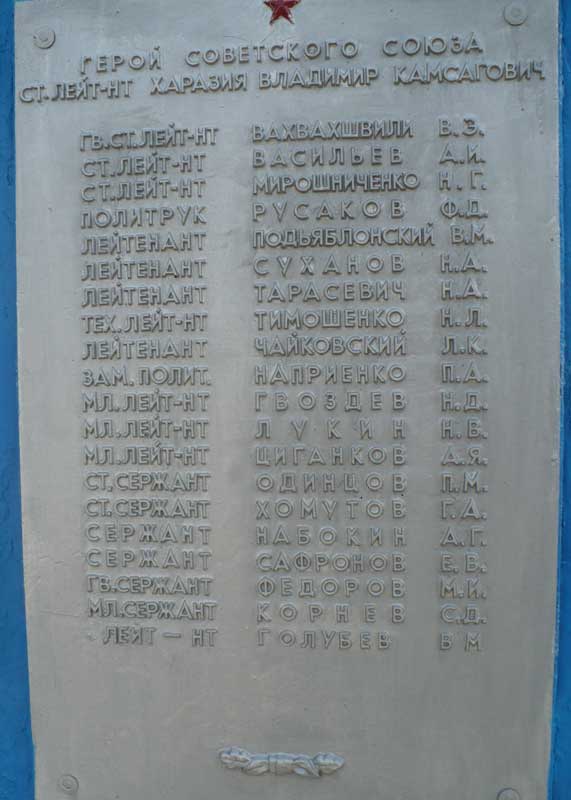 ГЕРОЙ СОВЕТСКОГО СОЮЗА
СТ. ЛЕЙТ-НТ ХАРАЗИЯ ВЛАДИМИР КАМСАГОВИЧ
ГВ. СТ. ЛЕЙТ-НТ ВАХВАХШВИЛИ В. Э.
СТ. ЛЕЙТ-НТ ВАСИЛЬЕВ А. И.
СТ. ЛЕЙТ-НТ МИРОШНИЧЕНКО Н. Г.
ПОЛИТРУК РУСАКОВ Ф. Д.
ЛЕЙТЕНАНТ ПОДЬЯБЛОНСКИЙ В. М.
ЛЕЙТЕНАНТ СУХАНОВ Н. А.
ЛЕЙТЕНАНТ ТАРАСЕВИЧ Н. А.
ТЕХ. ЛЕЙТ-НТ ТИМОШЕНКО Н. Л.
ЛЕЙТЕНАНТ ЧАЙКОВСКИЙ Л. К.
ЗАМ. ПОЛИТ. НАПРИЕНКО П. А.
МЛ. ЛЕЙТ-НТ ГВОЗДЕВ Н. Д.
МЛ. ЛЕЙТ-НТ ЛУКИН Н. В.
МЛ. ЛЕЙТ-НТ ЦИГАНКОВ А. Я.
СТ. СЕРЖАНТ ОДИНЦОВ П. М.
СТ. СЕРЖАНТ ХОМУТОВ Г. А.
СЕРЖАНТ НАБОКИН А. Г.
СЕРЖАНТ САФРОНОВ Е. В.
ГВ. СЕРЖАНТ ФЕДОРОВ М. И.
МЛ. СЕРЖАНТ КОРНЕВ С. Д.
ЛЕЙТ — НТ ГОЛУБЕВ В М